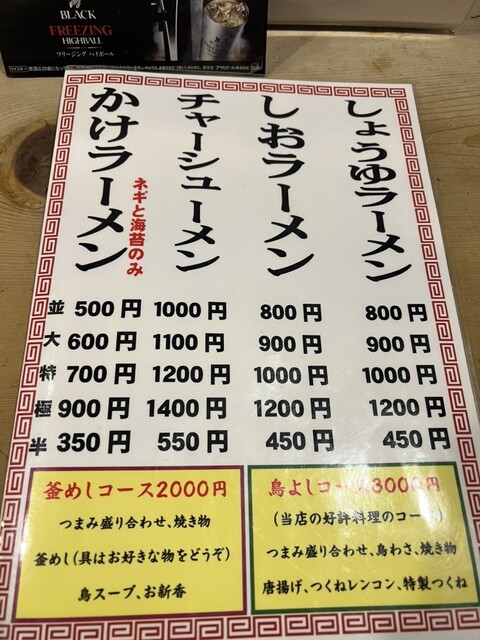 BLACK
FREEZING
HIGHBALL
フリージング ハイボール
しょうゆラーメン
しおラーメン
チャーシューメン
かけラーメン
ネギと海苔のみ
並 500円 1000円 800円 800円
大 600円 1100円 900円 900円
特 700円 1200円 1000円 1000円
極 900円 1400円 1200円 1200円
半 350円 550円 450円 450円
釜めしコース2000円
つまみ盛り合わせ、焼き物
釜めし(具はお好きな物をどうぞ)
鳥スープ、お新香
鳥よしコース3000円
(当店の好評料理のコース)
つまみ盛り合わせ、鳥わさ、焼き物
唐揚げ、つくねレンコン、特製つくね